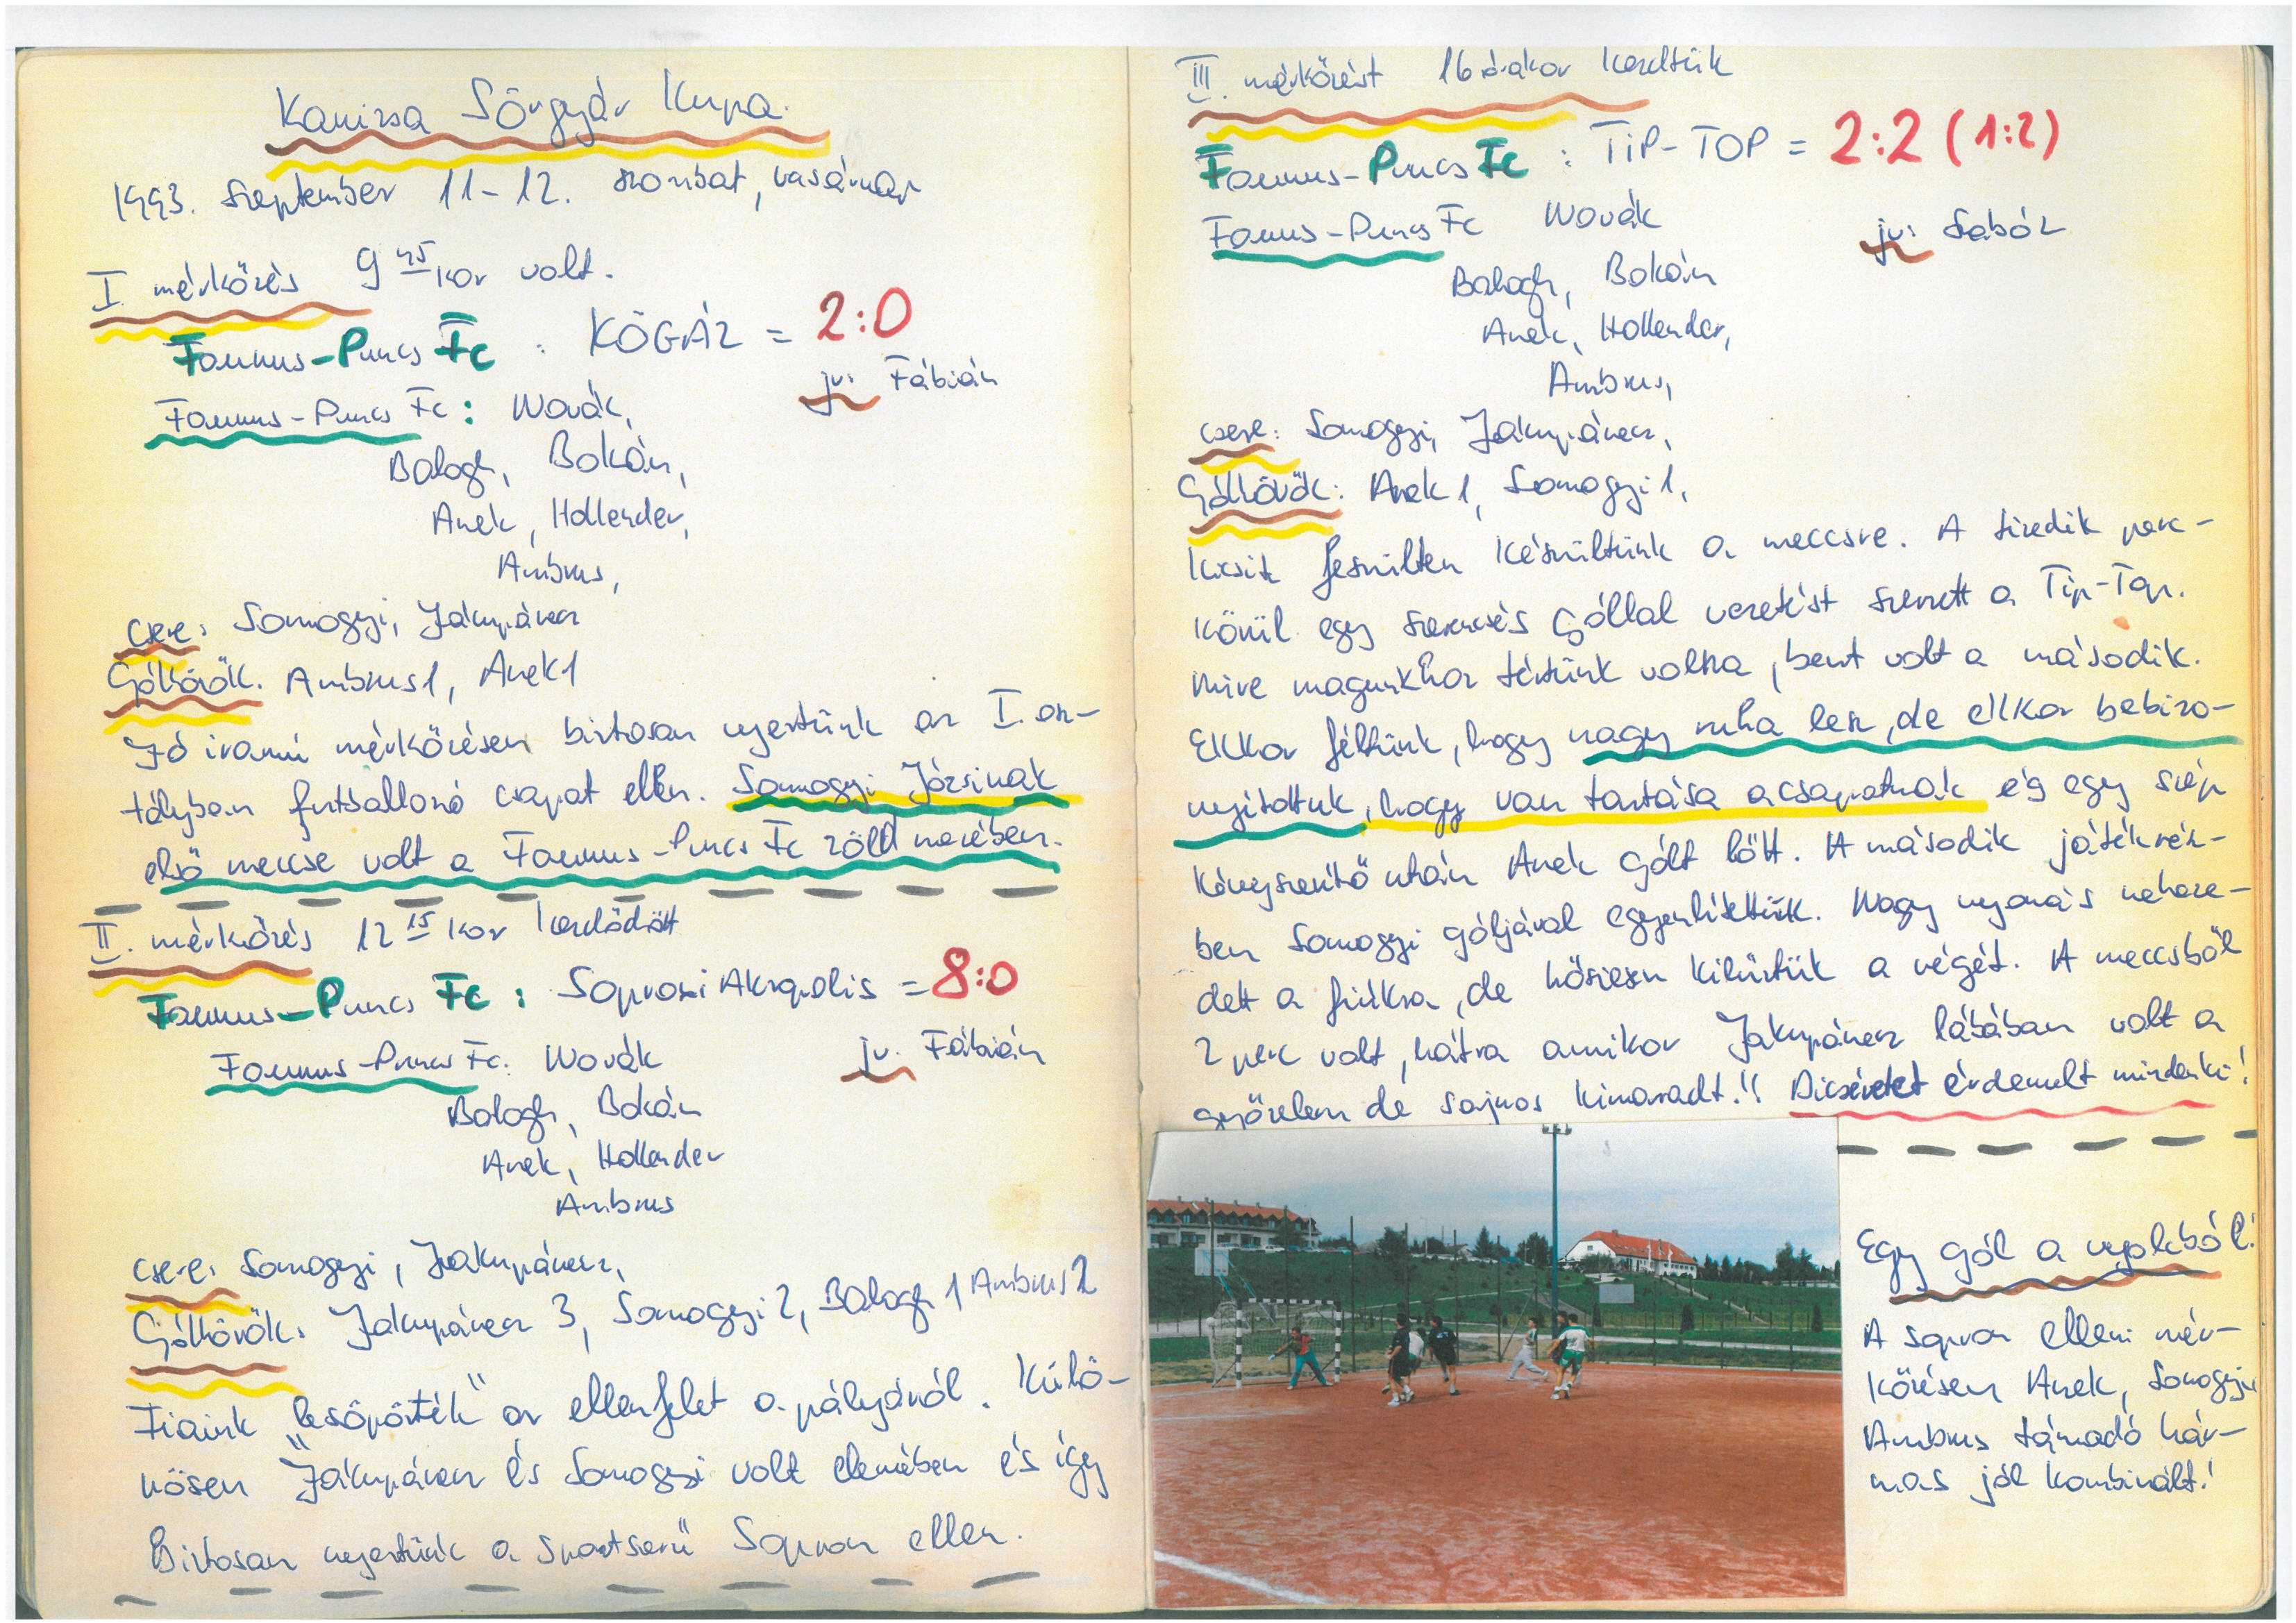 Kanizsa Sörgyár Kupa.
1993. Szeptember 11-12. szombat, vasárnap
I. mérkőzés 9 45 kor volt.
Faunus-Puncs Fc : KÖGÁZ = 2:0
jv: Fábián
Faunus-Puncs Fc: Novák,
Balogh, Bokán,
Anek, Hollender,
Ambrus,
csere: Somogyi, Jákupánecz
Góllövők. Ambrus 1, Anek 1
Jó iramú mérkőzésen biztosan nyertünk az I. osz-
tályban futballozó csapat ellen. Somogyi Józsinak
első meccse volt a Faunus-Puncs Fc zöld mezében.
II. mérkőzés 12 15 kor kezdődött
Faunus-Puncs Fc : Soproni Akropolis = 8:0
jv. Fábián
Faunus-Puncs Fc. Novák
Balogh, Bokán
Anek, Hollender
Ambrus
csere: Somogyi, Jakupánecz,
Góllövők: Jakupánecz 3, Somogyi 2, Balogh 1 Ambrus 2
Fiaink "lesöpörték" az ellenfelet a pályáról. Külö-
nösen Jákupánecz és Somogyi volt elemében és így
Biztosan nyertünk a sportszerű Sopron ellen.
III. mérkőzést 16 órakor kezdtük
Faunus-Puncs Fc : TiP-TOP = 2:2 (1:2)
Faunus-Puncs Fc Novák
jv: Sabóz
Balogh, Bokán
Anek, Hollender,
Ambrus,
csere: Somogyi, Jákupánecz,
Góllövők: Anek 1, Somogyi 1,
Kicsit feszülten készültünk a meccsre. A tizedik perc-
körül egy szerencsés góllal vezetést szerzett a Tip-Top.
Mire magunkhoz tértünk volna, bent volt a második.
Ekkor féltünk, hogy nagy ruha lesz, de ekkor bebizo-
nyítottuk, hogy van tartása a csapatnak és egy szép
kényszerítő után Anek gólt lőtt. A második játékrész-
ben Somogyi góljával egyenlítettünk. Nagy nyomás neheze-
dett a fiúkra, de hősiesen kihúztuk a végét. A meccsből
2 perc volt, hátra amikor Jakupánecz lábában volt a
győzelem de sajnos kimaradt!! Dicséretet érdemelt mindenki!
Egy gól a nyolcból!
A sopron elleni mér-
kőzésen Anek, Somogyi
Ambrus támadó hár-
mas jól kombinált!